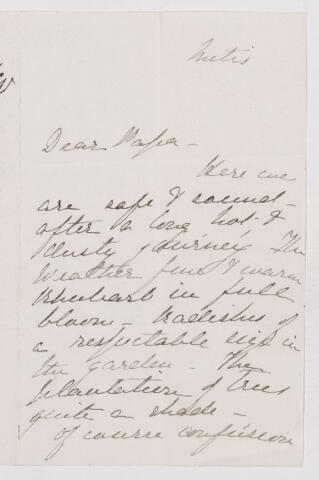 Metis
Dear Papa -
Here we
are safe & sound -
after a long hot &
dusty journey. The
Weather fine & warm
Rhubarb in full
bloom - radishes of
a respectable size in
the garden - The
plantation of trees
quite a shade -
of course confusion